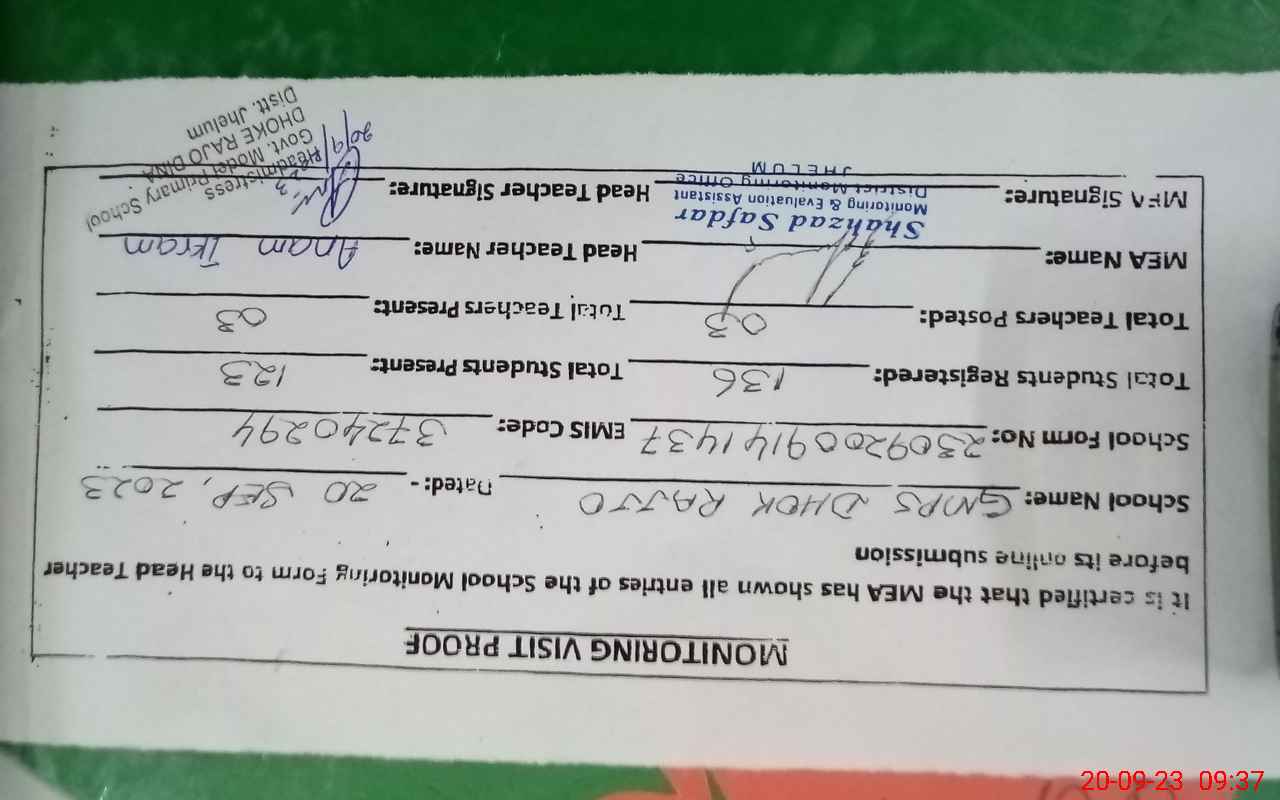 MONITORING VISIT PROOF
It is certified that the MEA has shown all entries of the School Monitoring Form to the Head Teacher
before its online submission
School Name: GMPS DHOK RAJJO Dated: - 20 SEP, 2023
School Form No: 23092009141437 EMIS Code: 37240294
Total Students Registered: 136 Total Students Present: 123
Total Teachers Posted: 03 Total Teachers Present: 03
MEA Name: Head Teacher Name: Anam Ikram
Shahzad Safdar
Monitoring & Evaluation Assistant
District Monitoring Office
JHELUM
MEA Signature: Head Teacher Signature:
20/9/23
Headmistress
Govt. Model Primary School
DHOKE RAJO DINA
Distt. Jhelum
20-09-23 09:37